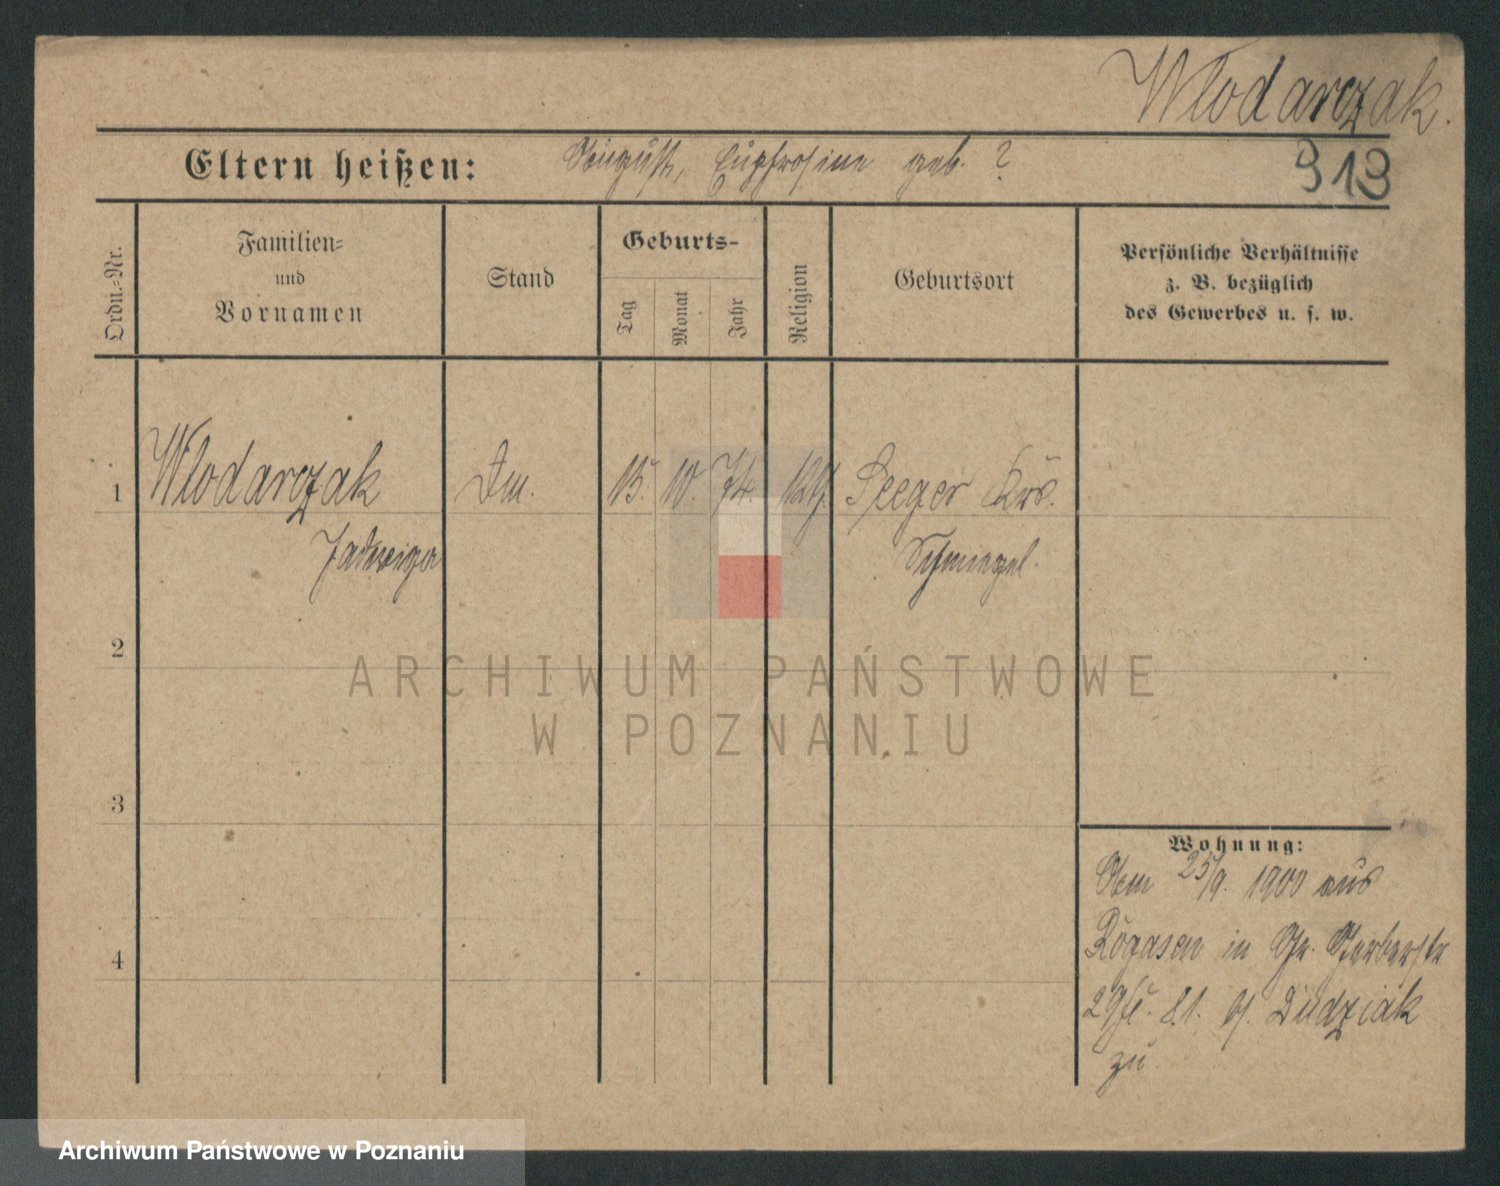 Wlodarczak.
Eltern heißen: August, Eupfrosine geb. ?
313
Ordn.-Nr.
Familien-
und
Vornamen
Stand
Geburts-
Tag
Monat
Jahr
Religion
Geburtsort
Persönliche Verhältnisse
z. B. bezüglich
des Gewerbes u. s. w.
1 Wlodarczak Dm. 15. 10. 74. Seeger Krs.
Jadwiga Schmiegel.
2
ARCHIWUM PAŃSTWOWE
W POZNANIU
3
Wohnung:
25/9. 1900 aus
Rogasen in Gr. Gerberstr
4
29 II. b/ Dudziak
zu
Archiwum Państwowe w Poznaniu